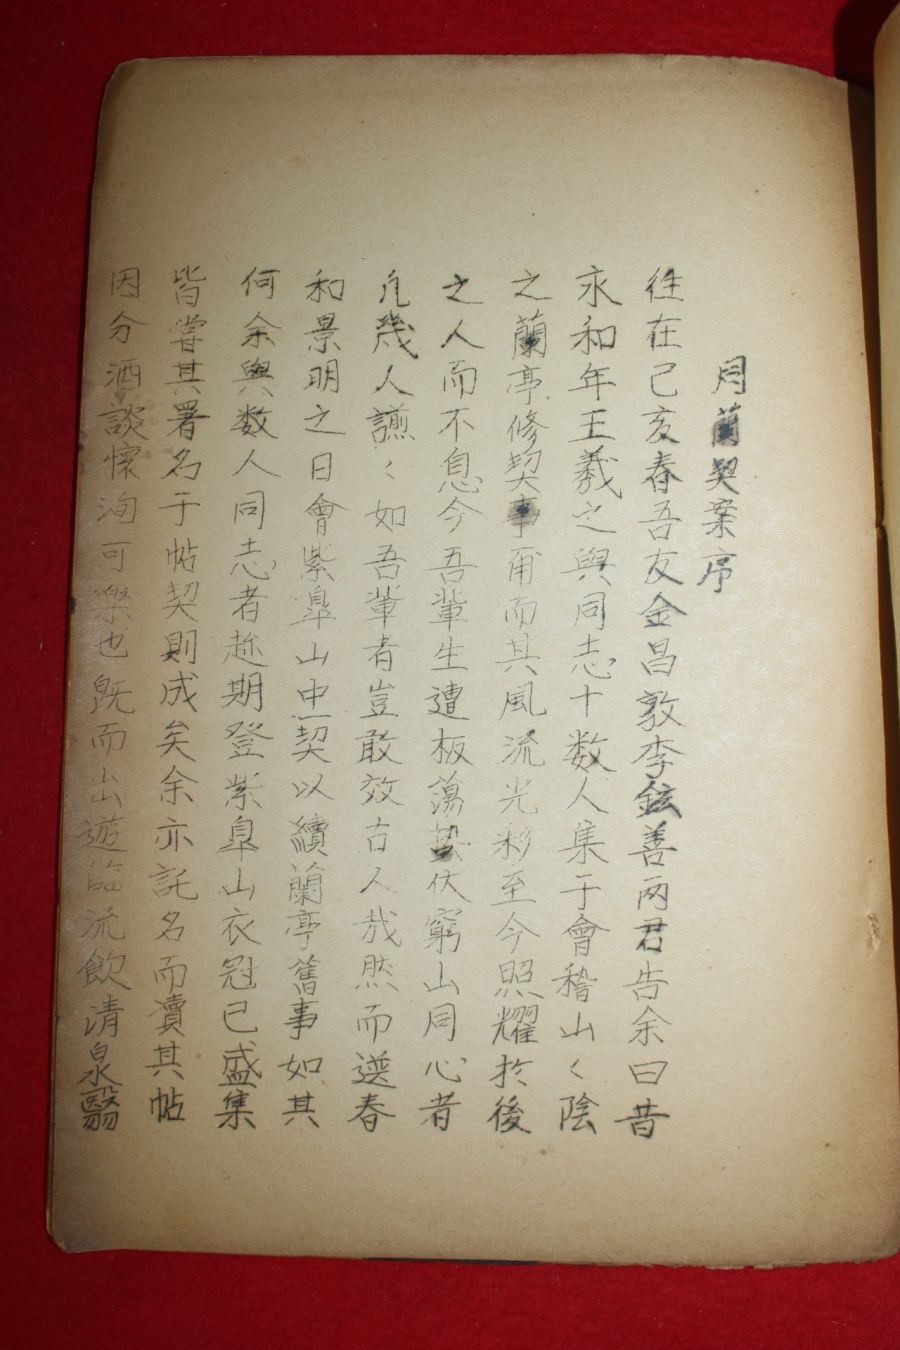 同蘭契案序
往在己亥春吾友金昌敦李鉉善兩君告余曰昔
永和年王羲之與同志十数人集于會稽山〻陰
之蘭亭修契事甯而其風流光彩至今照耀扵後
之人而不息今吾輩生遭板蕩蟄伏窮山同心者
凢幾人讌〻如吾輩者豈敢效古人哉然而選春
和景明之日會紫皐山中契以續蘭亭舊事如其
何余與数人同志者趂期登紫皐山衣冠已盛集
皆嘗其署名于帖契則成矣余亦託名而賣其帖
因分酒談懷洵可樂也旣而出遊臨流飮清泉翳